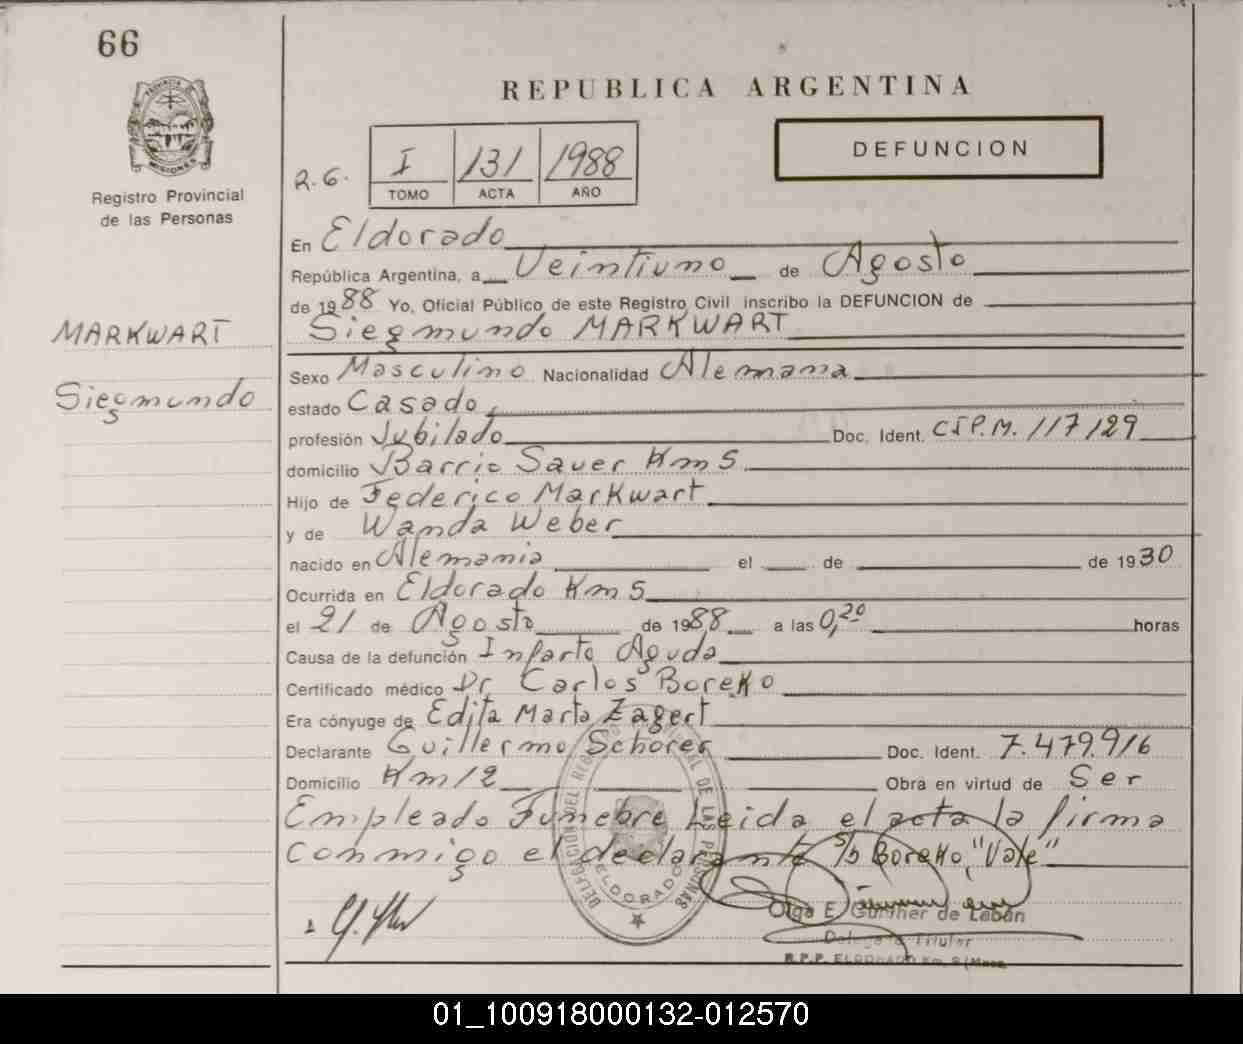 66
PROVINCIA DE MISIONES
Registro Provincial
de las Personas
REPUBLICA ARGENTINA
DEFUNCION
R.G. I 131 1988
TOMO ACTA AÑO
En Eldorado
República Argentina, a Veintiuno de Agosto
de 1988 Yo, Oficial Público de este Registro Civil inscribo la DEFUNCION de
MARKWART
Siegmundo
Siegmundo MARKWART
Sexo Masculino Nacionalidad Alemana
estado Casado
profesión Jubilado Doc. Ident. C.I.P.M. 117129
domicilio Barrio Sauer Km 5
Hijo de Federico Markwart
y de Wanda Weber
nacido en Alemania el de de 1930
Ocurrida en Eldorado Km 5
el 21 de Agosto de 1988 a las 0,20 horas
Causa de la defunción Infarto Agudo
Certificado médico Dr Carlos Boretto
Era cónyuge de Edita Marta Zagert
Declarante Guillermo Schorer Doc. Ident. 7.479.916
Domicilio Km 12 Obra en virtud de Ser
Empleado Funebre Leida el acta la firma
Conmigo el declarante S/b Boretto, "Vale"
DELEGACION DEL REGISTRO PROVINCIAL DE LAS PERSONAS
ELDORADO
Olga E. Gunther de Leban
Delegada Titular
R.P.P. ELDORADO Km. 9 (Mnes
01_100918000132-012570